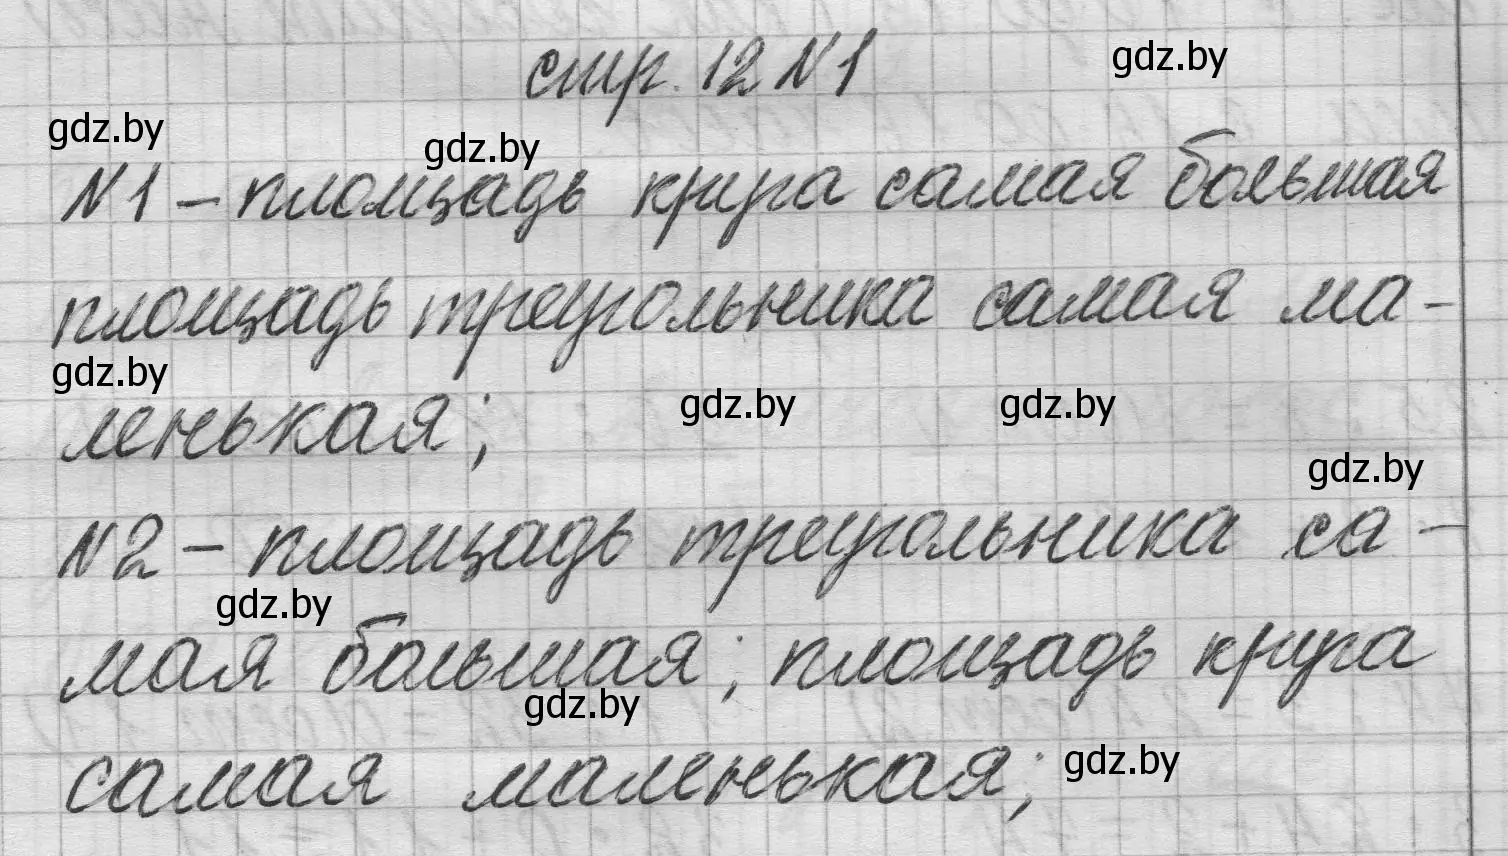 стр. 12 N1
gdz.by
gdz.by
gdz.by
N1 – площадь круга самая большая
площадь треугольника самая ма-
gdz.by
ленькая;
gdz.by
gdz.by
gdz.by
N2 – площадь треугольника са-
gdz.by
мая большая; площадь круга
gdz.by
самая маленькая;
gdz.by